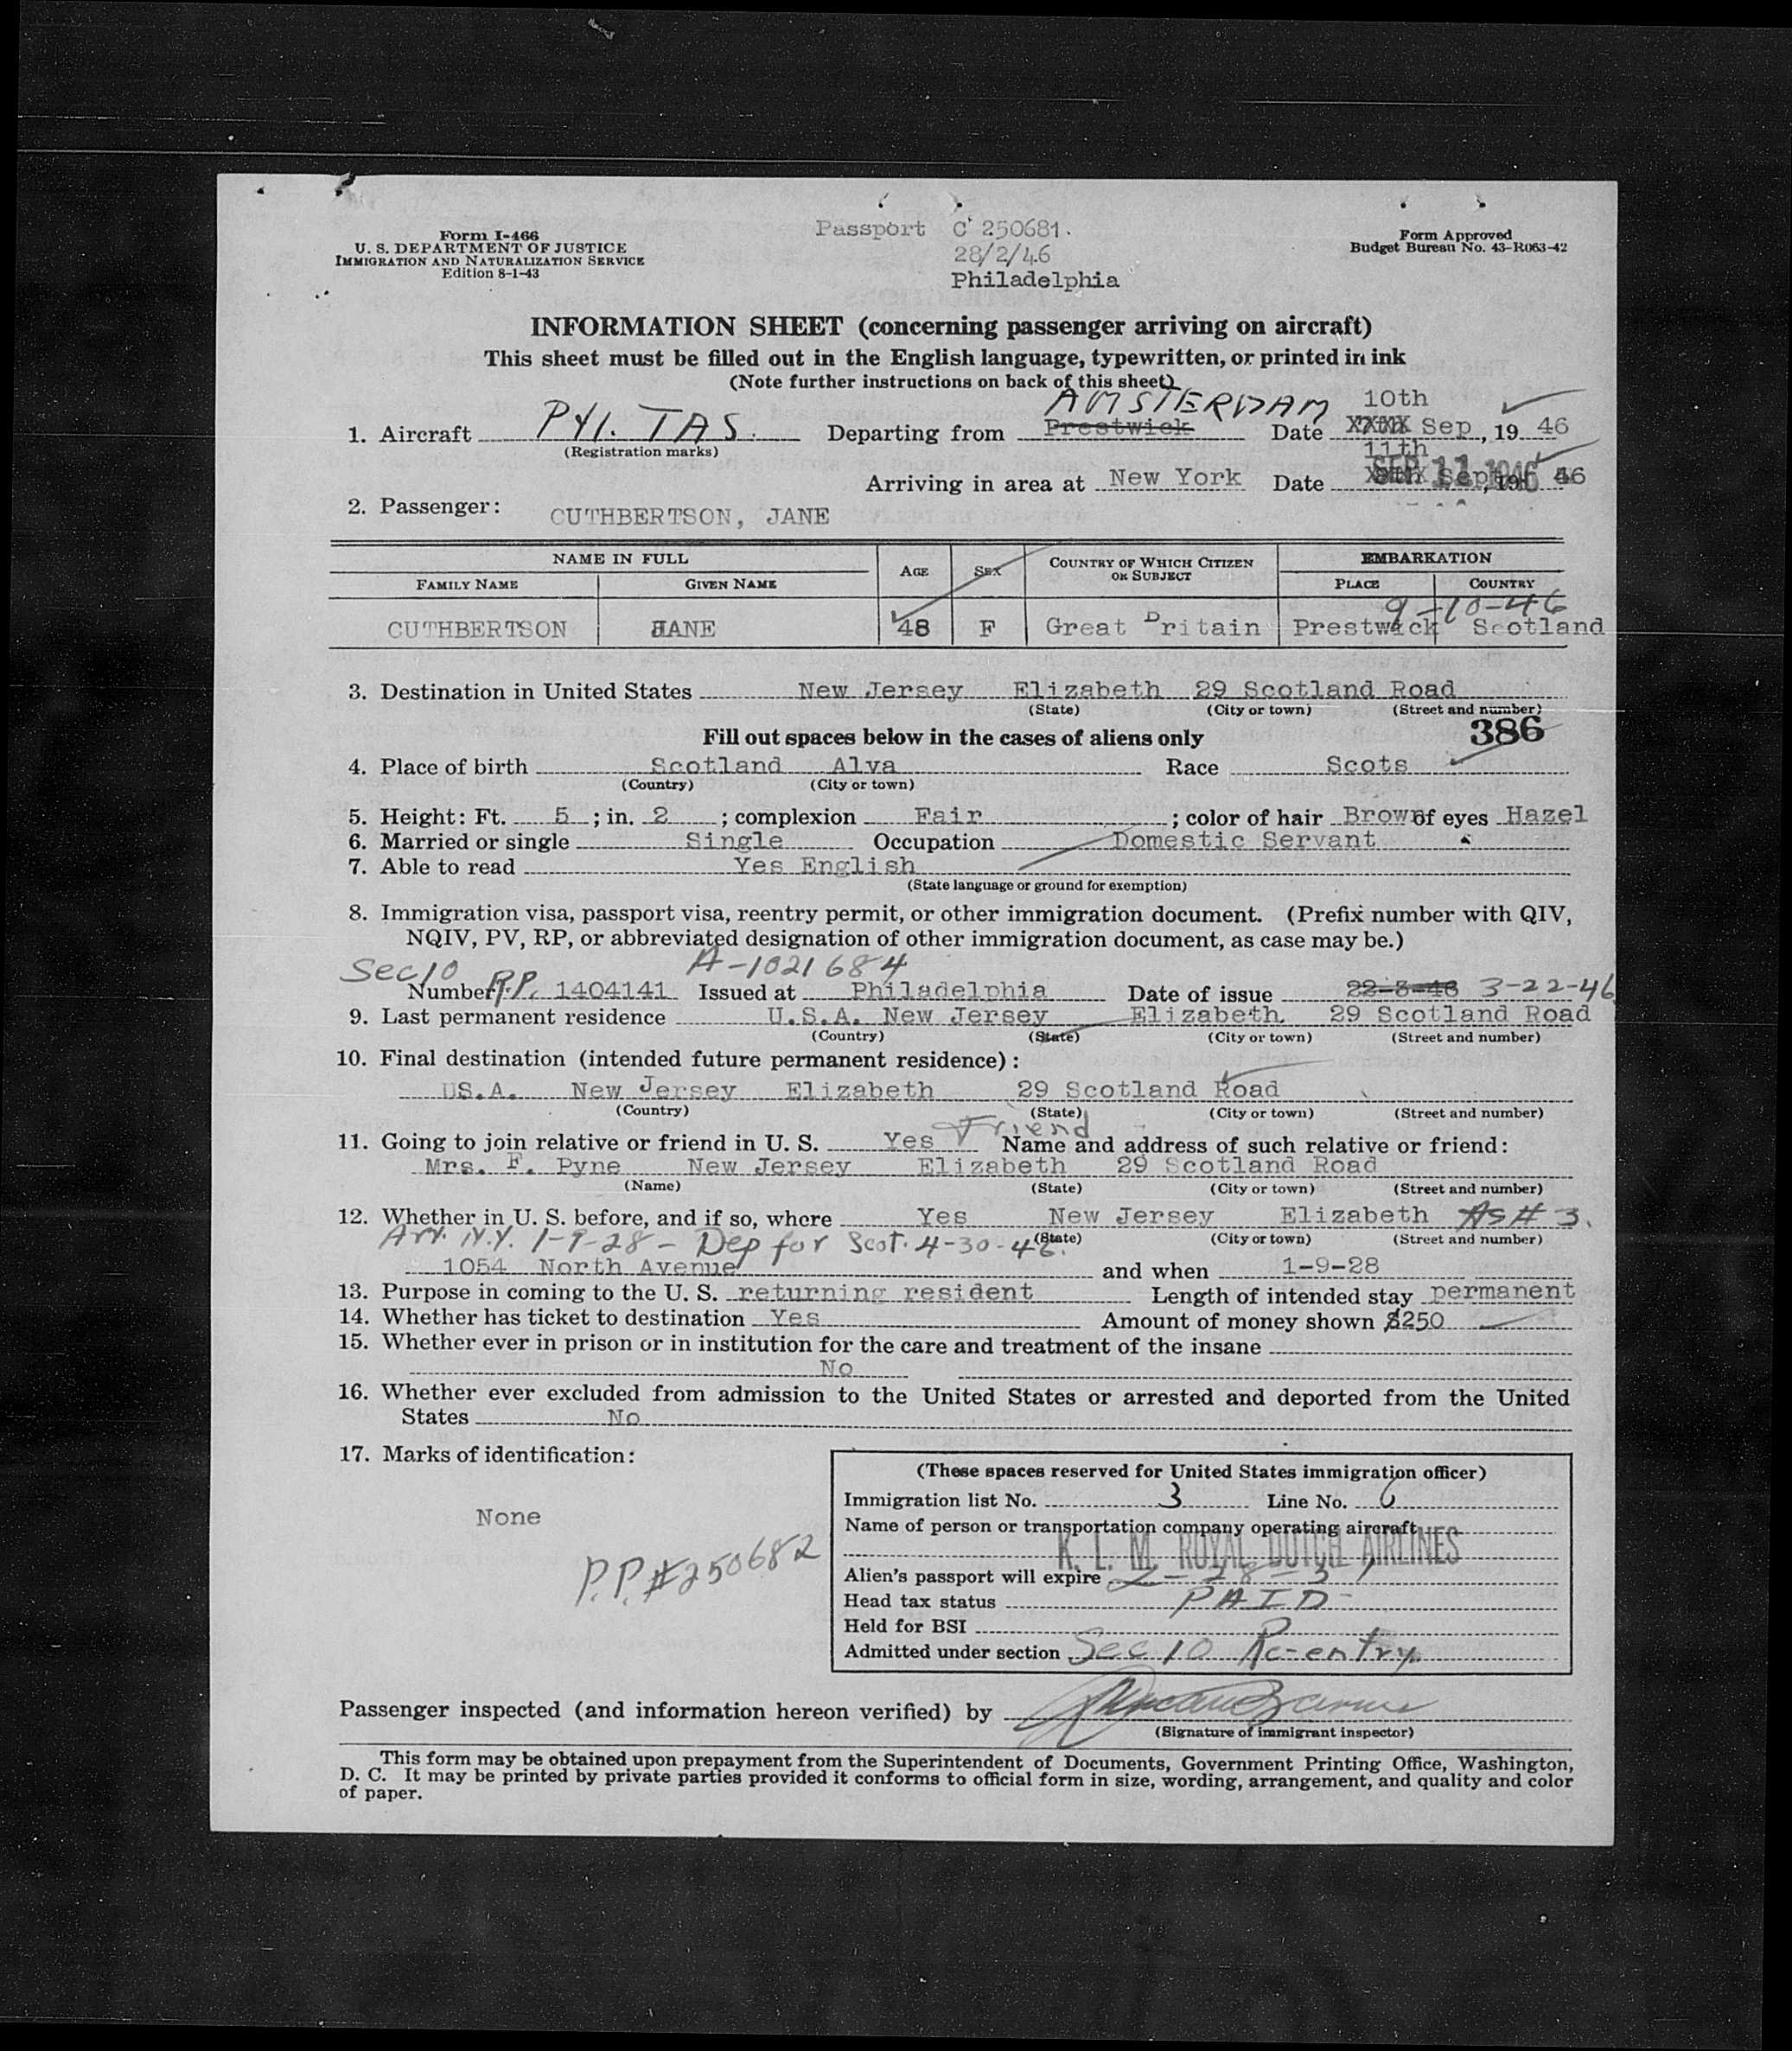 Form I-466
U. S. DEPARTMENT OF JUSTICE
IMMIGRATION AND NATURALIZATION SERVICE
Edition 8-1-43
Passport C 250681.
28/2/46
Philadelphia
Form Approved
Budget Bureau No. 43-R063-42
INFORMATION SHEET (concerning passenger arriving on aircraft)
This sheet must be filled out in the English language, typewritten, or printed in ink
(Note further instructions on back of this sheet)
AMSTERDAM 10th
1. Aircraft PH. TAS. Departing from Prestwick Date Sep, 19 46
(Registration marks)
11th
Arriving in area at New York Date SEP 11 1946 Sept, 19 46
2. Passenger: CUTHBERTSON, JANE
NAME IN FULL AGE SEX COUNTRY OF WHICH CITIZEN OR SUBJECT EMBARKATION
FAMILY NAME GIVEN NAME PLACE COUNTRY
9-10-46
CUTHBERTSON JANE 48 F Great Britain Prestwick Scotland
3. Destination in United States New Jersey Elizabeth 29 Scotland Road
(State) (City or town) (Street and number)
386
Fill out spaces below in the cases of aliens only
4. Place of birth Scotland Alva Race Scots
(Country) (City or town)
5. Height: Ft. 5 ; in. 2 ; complexion Fair ; color of hair Brown of eyes Hazel
6. Married or single Single Occupation Domestic Servant
7. Able to read Yes English
(State language or ground for exemption)
8. Immigration visa, passport visa, reentry permit, or other immigration document. (Prefix number with QIV,
NQIV, PV, RP, or abbreviated designation of other immigration document, as case may be.)
Sec 10 A-1021684
Number R.P. 1404141 Issued at Philadelphia Date of issue 22-3-46 3-22-46
9. Last permanent residence U.S.A. New Jersey Elizabeth. 29 Scotland Road
(Country) (State) (City or town) (Street and number)
10. Final destination (intended future permanent residence):
US.A. New Jersey Elizabeth 29 Scotland Road
(Country) (State) (City or town) (Street and number)
11. Going to join relative or friend in U. S. Yes Friend Name and address of such relative or friend:
Mrs. F. Pyne New Jersey Elizabeth 29 Scotland Road
(Name) (State) (City or town) (Street and number)
12. Whether in U. S. before, and if so, where Yes New Jersey Elizabeth As # 3.
(State) (City or town) (Street and number)
Arr. N.Y. 1-9-28 - Dep for Scot. 4-30-46.
1054 North Avenue and when 1-9-28
13. Purpose in coming to the U. S. returning resident Length of intended stay permanent
14. Whether has ticket to destination Yes Amount of money shown $250
15. Whether ever in prison or in institution for the care and treatment of the insane
No
16. Whether ever excluded from admission to the United States or arrested and deported from the United
States No
17. Marks of identification:
None
P.P.#250682
(These spaces reserved for United States immigration officer)
Immigration list No. 3 Line No. 6
Name of person or transportation company operating aircraft
K. L. M. ROYAL DUTCH AIRLINES
Alien's passport will expire 2-28-51
Head tax status PAID
Held for BSI
Admitted under section Sec 10 Re-entry
Passenger inspected (and information hereon verified) by
(Signature of immigrant inspector)
This form may be obtained upon prepayment from the Superintendent of Documents, Government Printing Office, Washington,
D. C. It may be printed by private parties provided it conforms to official form in size, wording, arrangement, and quality and color
of paper.